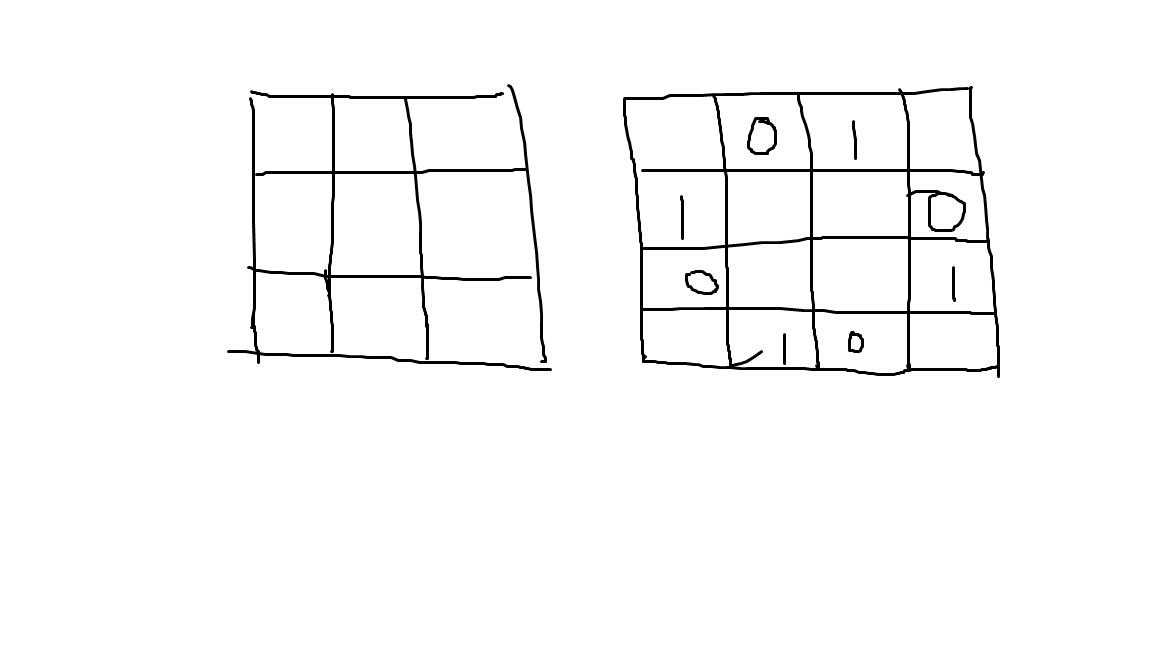 0 1
1 0
0 1
1 0